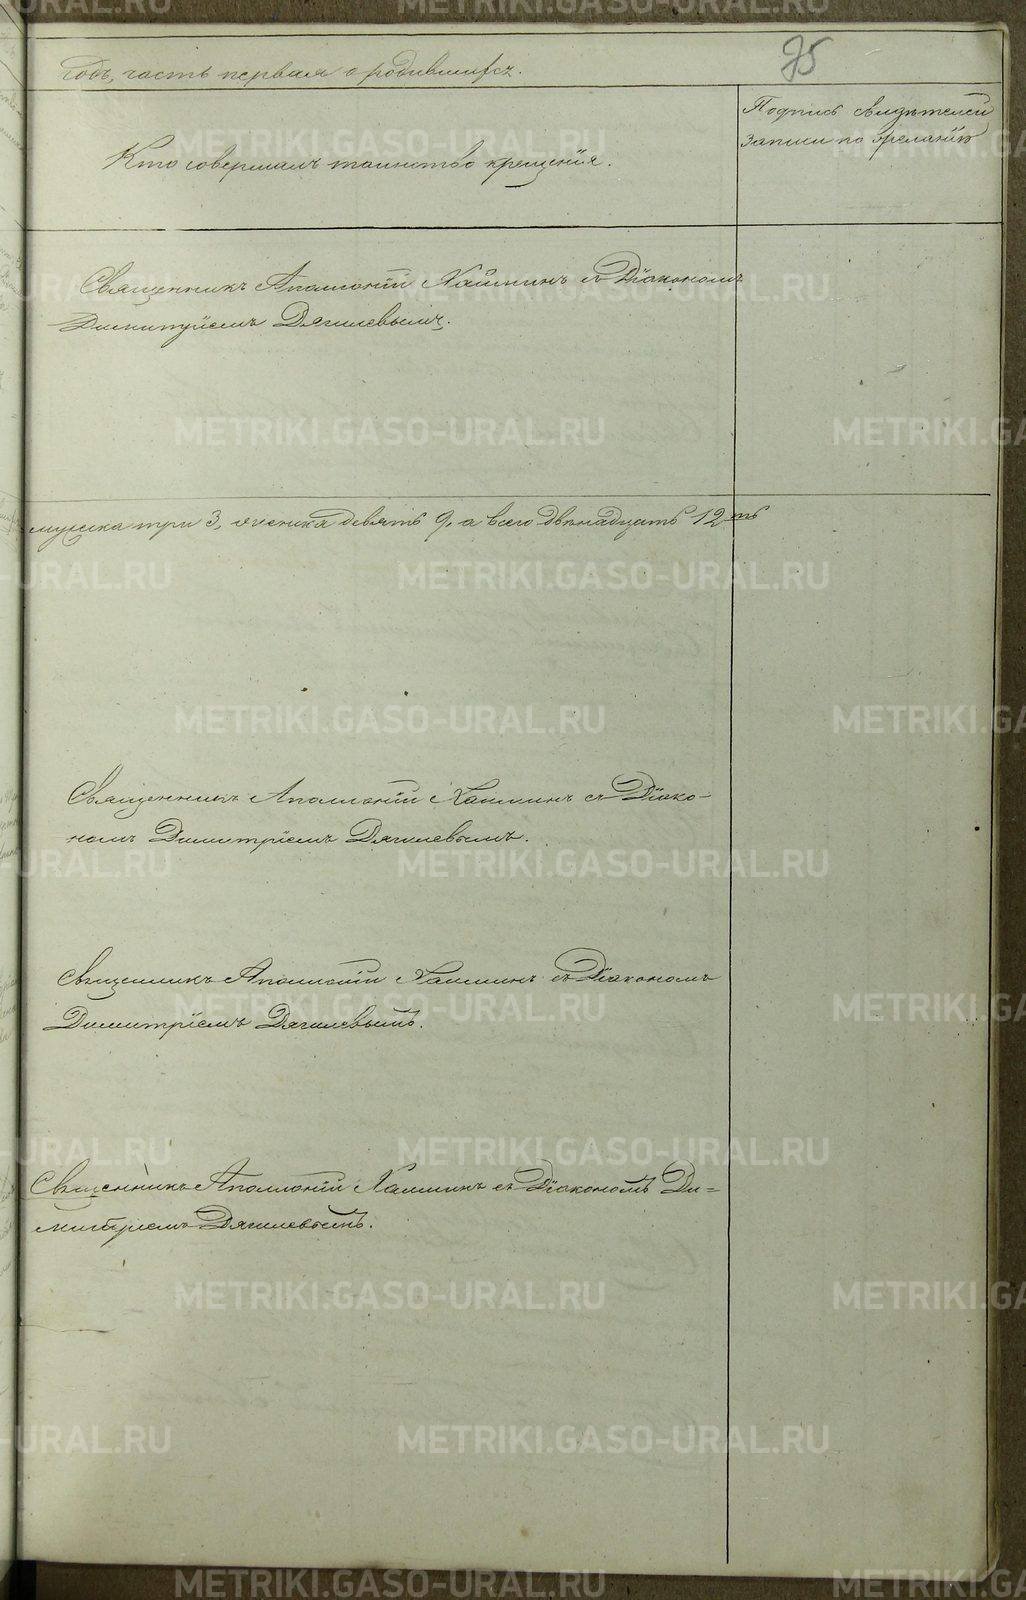 75
годъ, часть первая о родившихся.
Кто совершалъ таинство крещенія.
Подпись свидѣтелей
записи по желанію
Священникъ Аполлоній Хлынинъ съ Діакономъ
Димитріемъ Дягилевымъ.
мужска три 3, женска девять 9, а всего двѣнадцать 12ть
Священникъ Аполлоній съ Діако-
номъ Димитріемъ Дягилевымъ.
Священникъ Аполлоній съ Діакономъ
Димитріемъ Дягилевымъ.
Священникъ Аполлоній съ Діакономъ Ди=
митріемъ Дягилевымъ.
METRIKI.GASO-URAL.RU